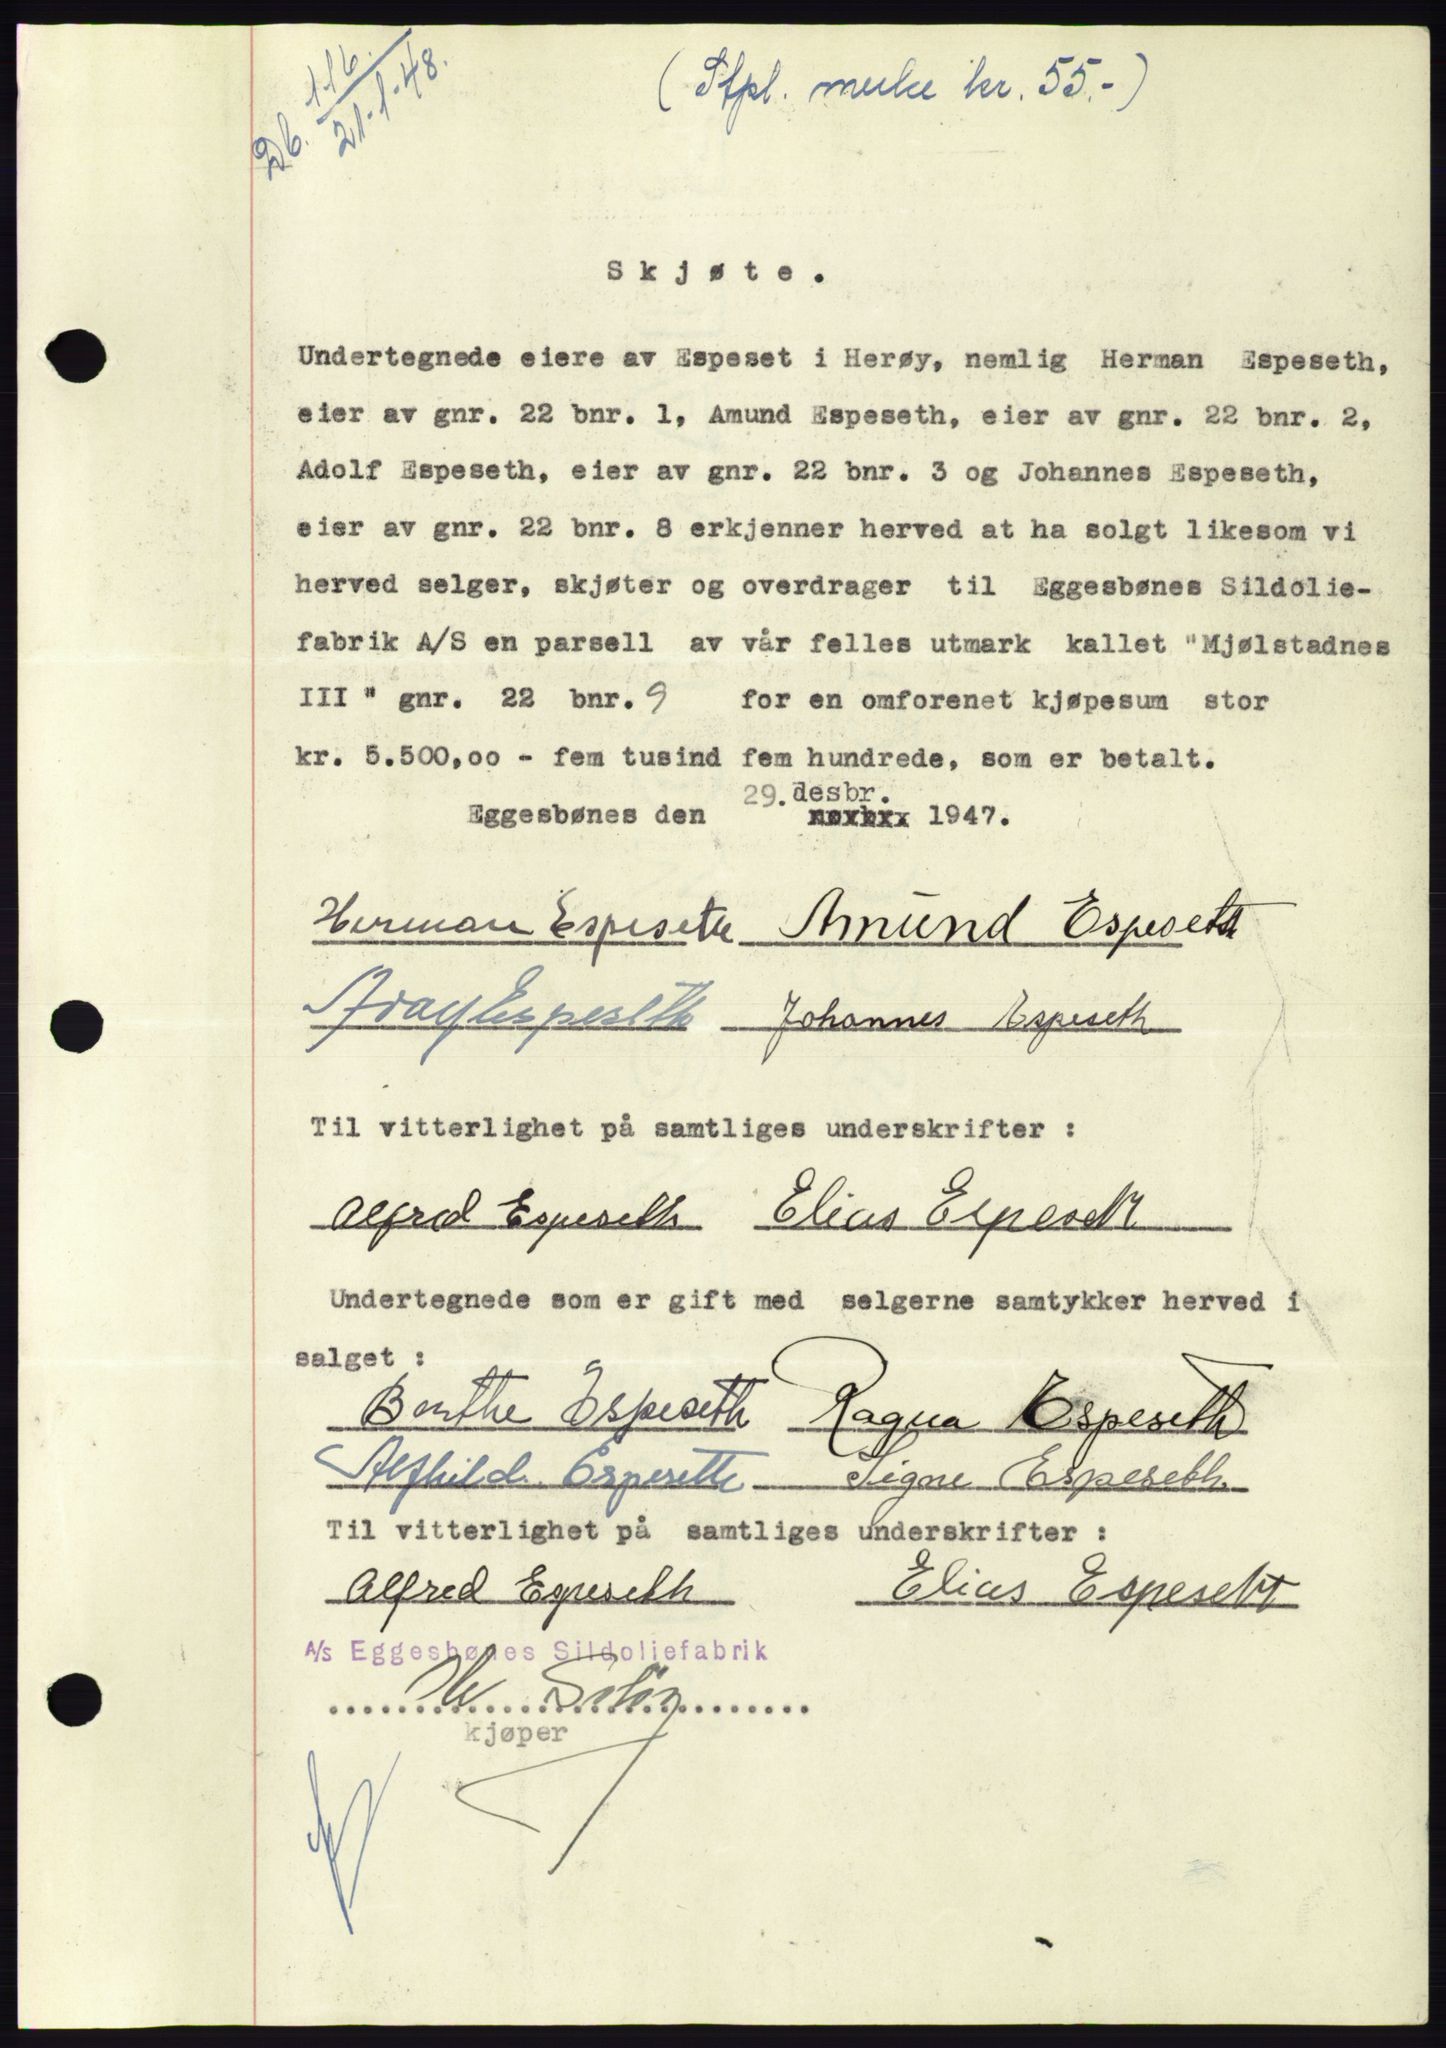 Db. 116.
21-1-48.
(Stpl. merke kr. 55.-)
Skjøte.
Undertegnede eiere av Espeset i Herøy, nemlig Herman Espeseth,
eier av gnr. 22 bnr. 1, Amund Espeseth, eier av gnr. 22 bnr. 2,
Adolf Espeseth, eier av gnr. 22 bnr. 3 og Johannes Espeseth,
eier av gnr. 22 bnr. 8 erkjenner herved at ha solgt likesom vi
herved selger, skjøter og overdrager til Eggesbønes Sildolie-
fabrik A/S en parsell av vår felles utmark kallet "Mjølstadnes
III " gnr. 22 bnr. 9 for en omforenet kjøpesum stor
kr. 5.500,oo - fem tusind fem hundrede, som er betalt.
29. desbr.
Eggesbønes den 1947.
Herman Espeseth Amund Espeseth
Espeseth Johannes Espeseth
Til vitterlighet på samtliges underskrifter :
Alfred Espeseth Elias Espeseth
Undertegnede som er gift med selgerne samtykker herved i
salget :
Berthe Espeseth Ragna Espeseth
Alfhild Espeseth Signe Espeseth.
Til vitterlighet på samtliges underskrifter :
Alfred Espeseth Elias Espeseth
A/s Eggesbønes Sildoliefabrik
kjøper